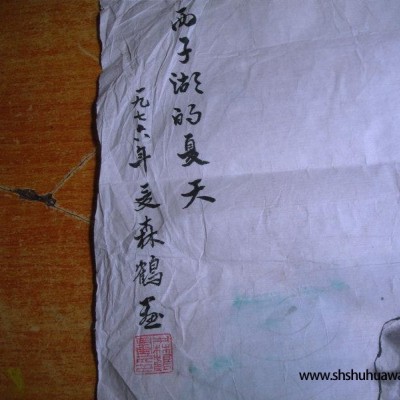 西子湖的夏天
一九七六年 森鹤画
www.shshuhuawa